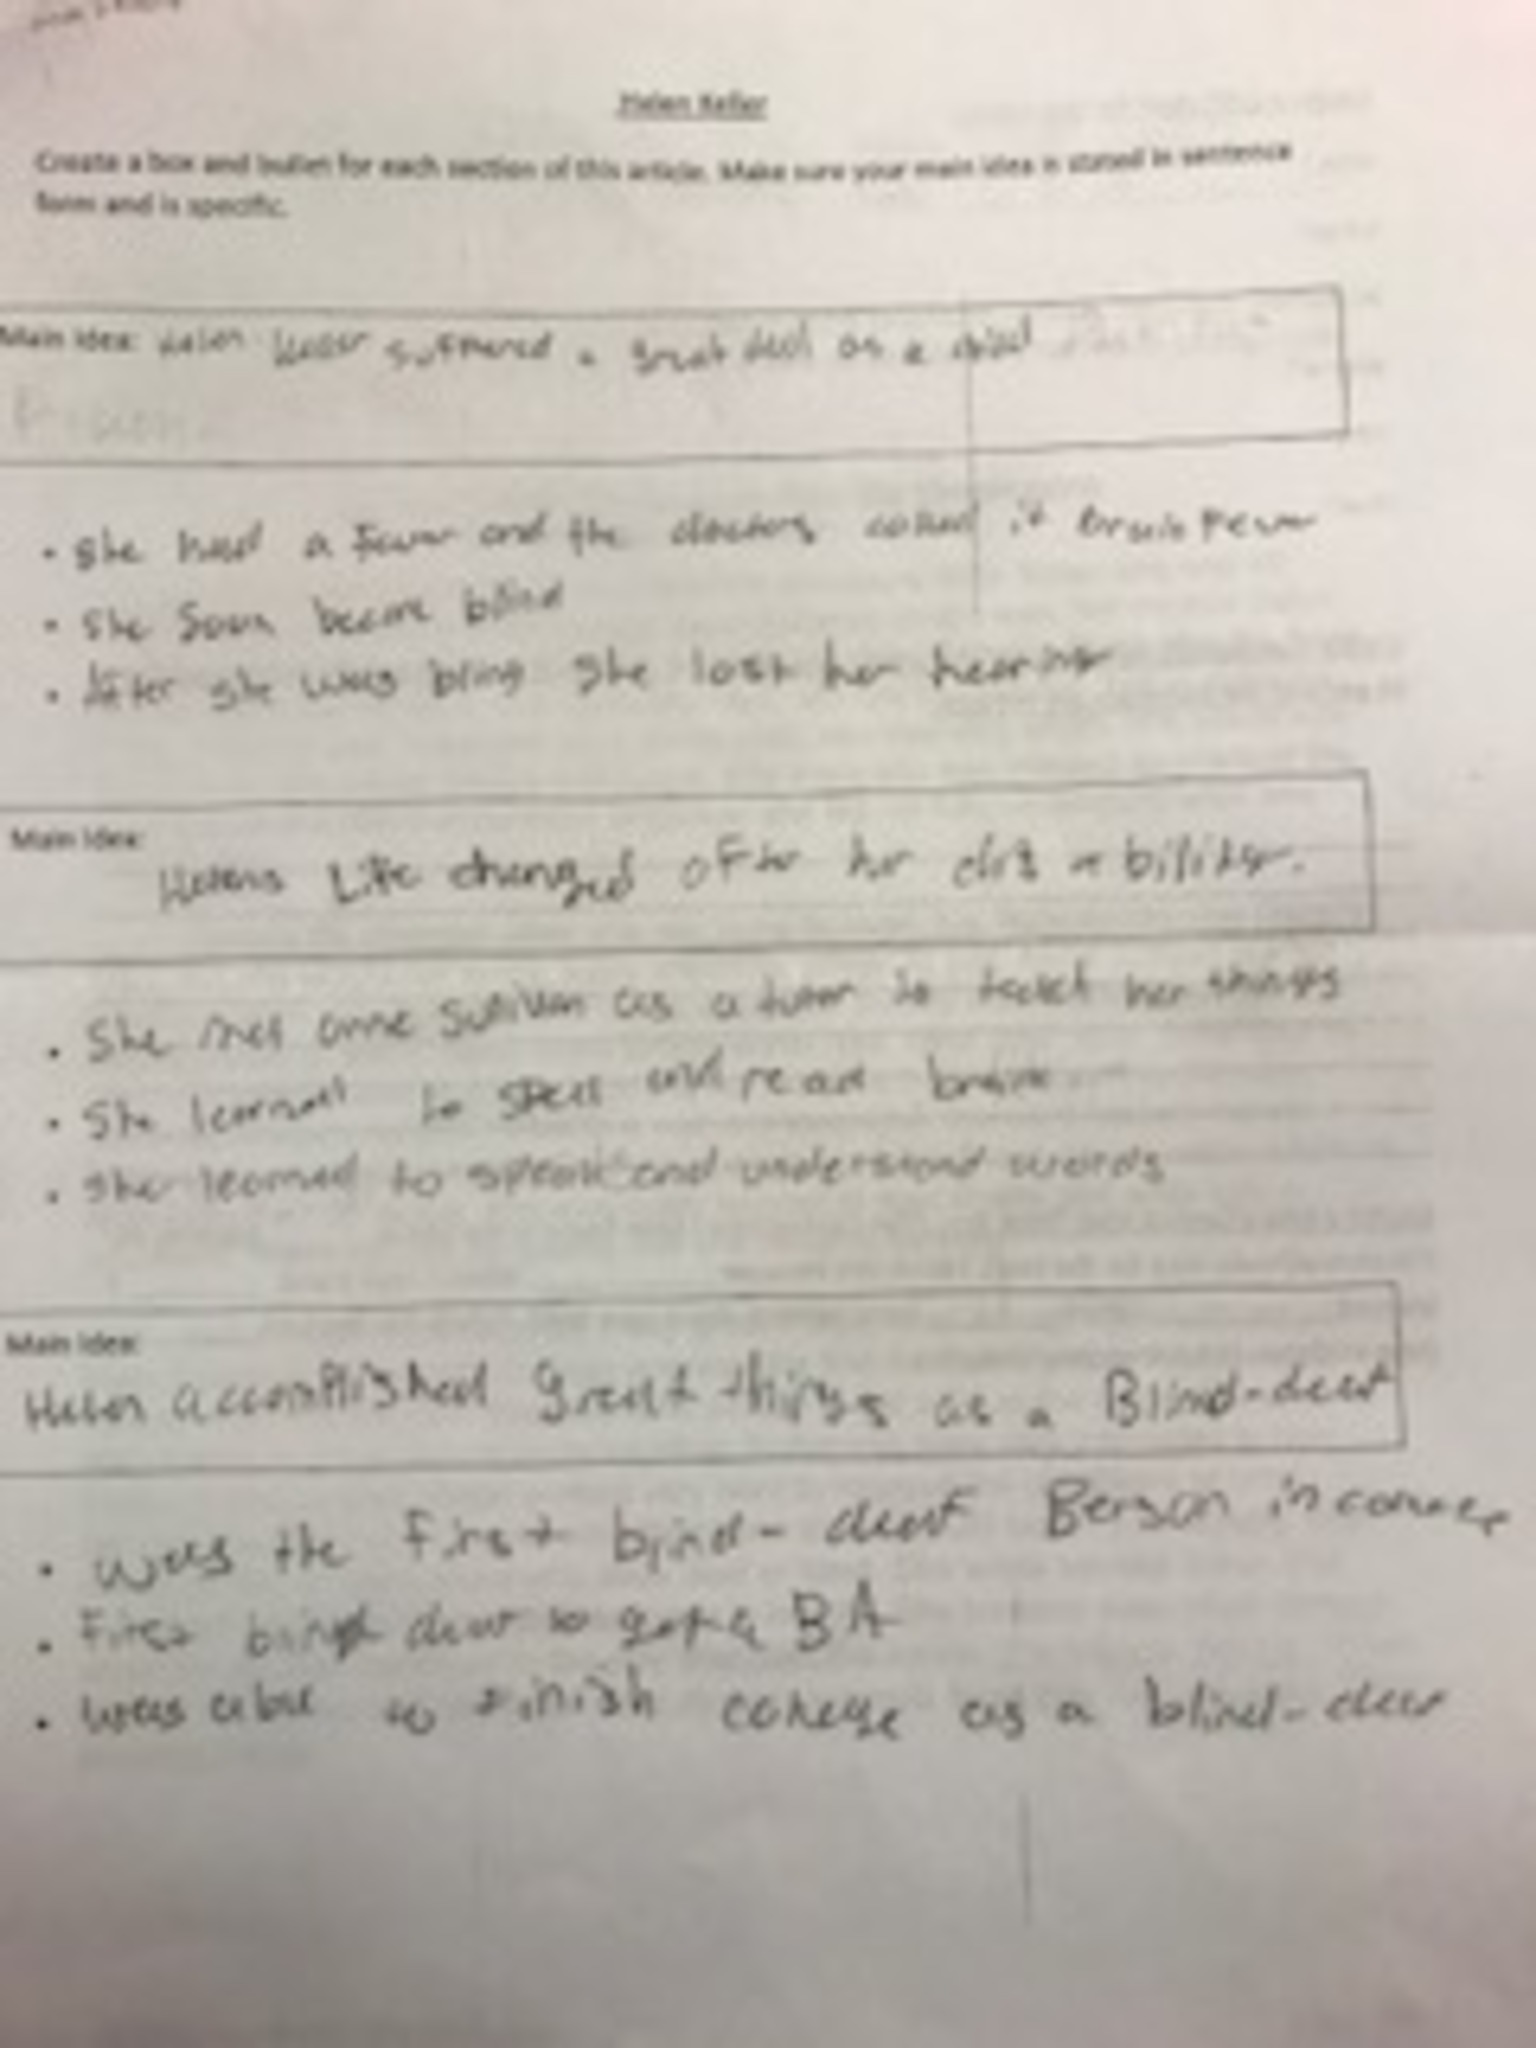 Helen Keller
Create a box and bullet for each section of this article. Make sure your main idea is stated in sentence
form and is specific.
Main Idea: Helen Keller suffered a great deal as a child
• She had a Fever and the doctors called it brain Fever
• She Soon became blind
• After she was bling she lost her hearing
Main Idea:
Helens Life changed after her disability.
• She met anne Sullivan as a tutor to teach her things
• She learned to spell and read braille
• She learned to speak and understand words
Main Idea:
Helen accomplished great things as a Blind-deaf
• was the First blind-deaf Person in college
• First blind deaf to get a BA
• was able to finish college as a blind-deaf